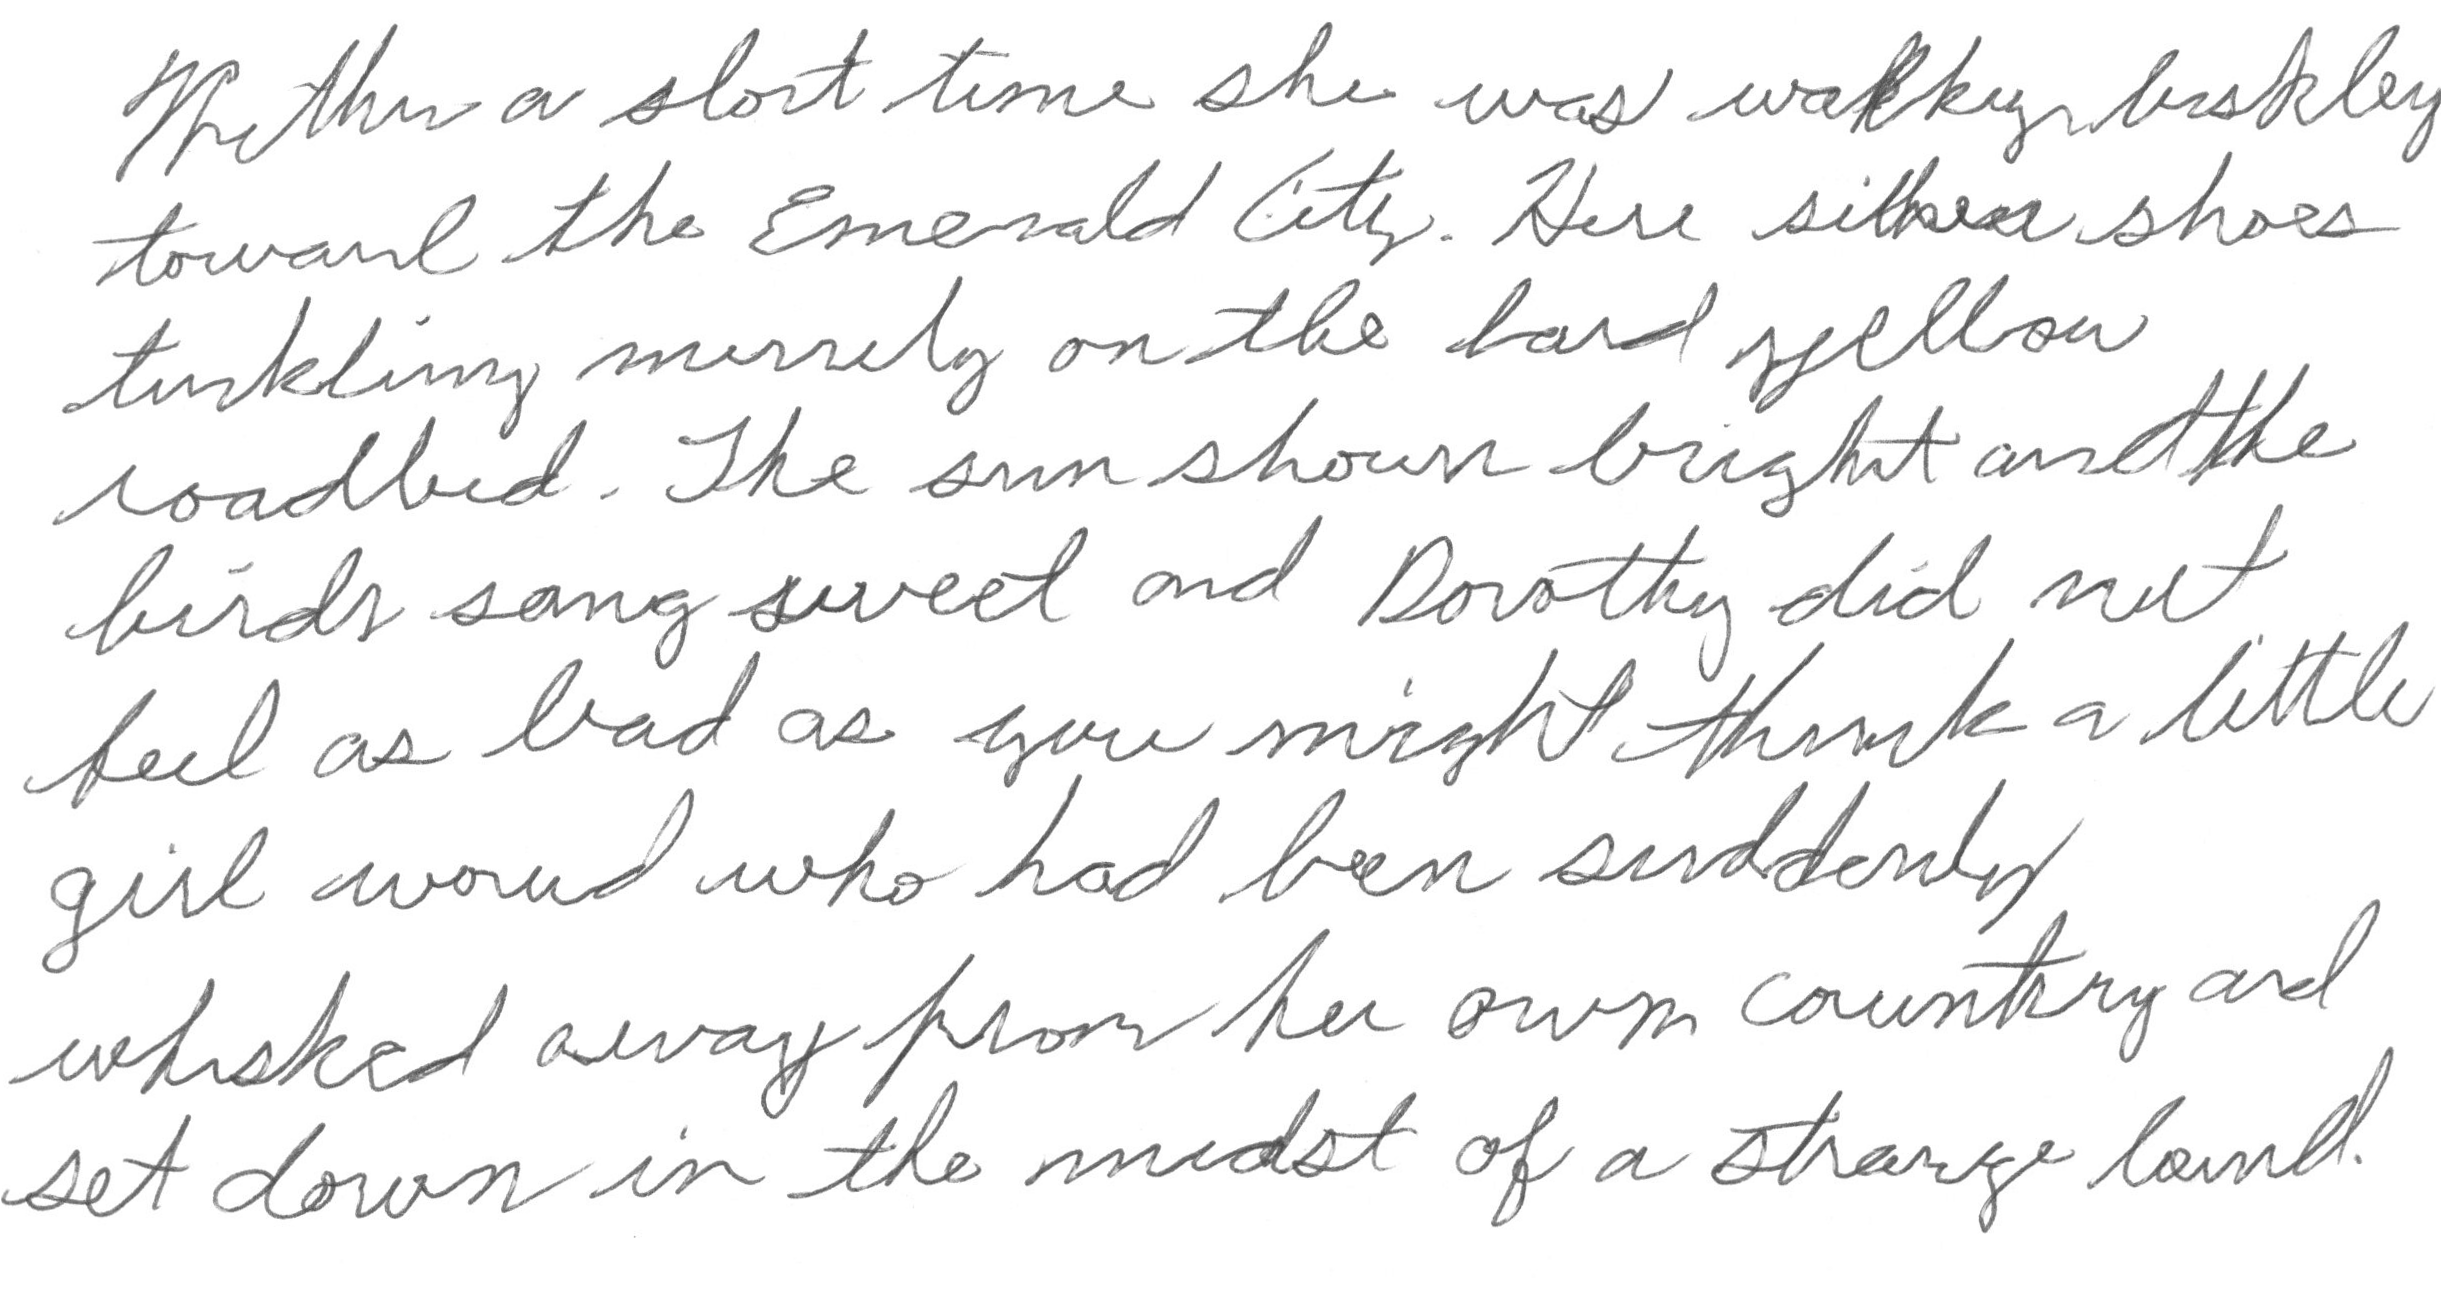 Within a short time she was walking briskley
toward the Emerald City. Here silver shoes
tinkling merrily on the hard yellow
roadbed. The sun shown bright and the
birds sang sweet and Dorothy did not
feel as bad as you might think a little
girl would who had been suddenly
whisked away from her own country and
set down in the midst of a strange land.